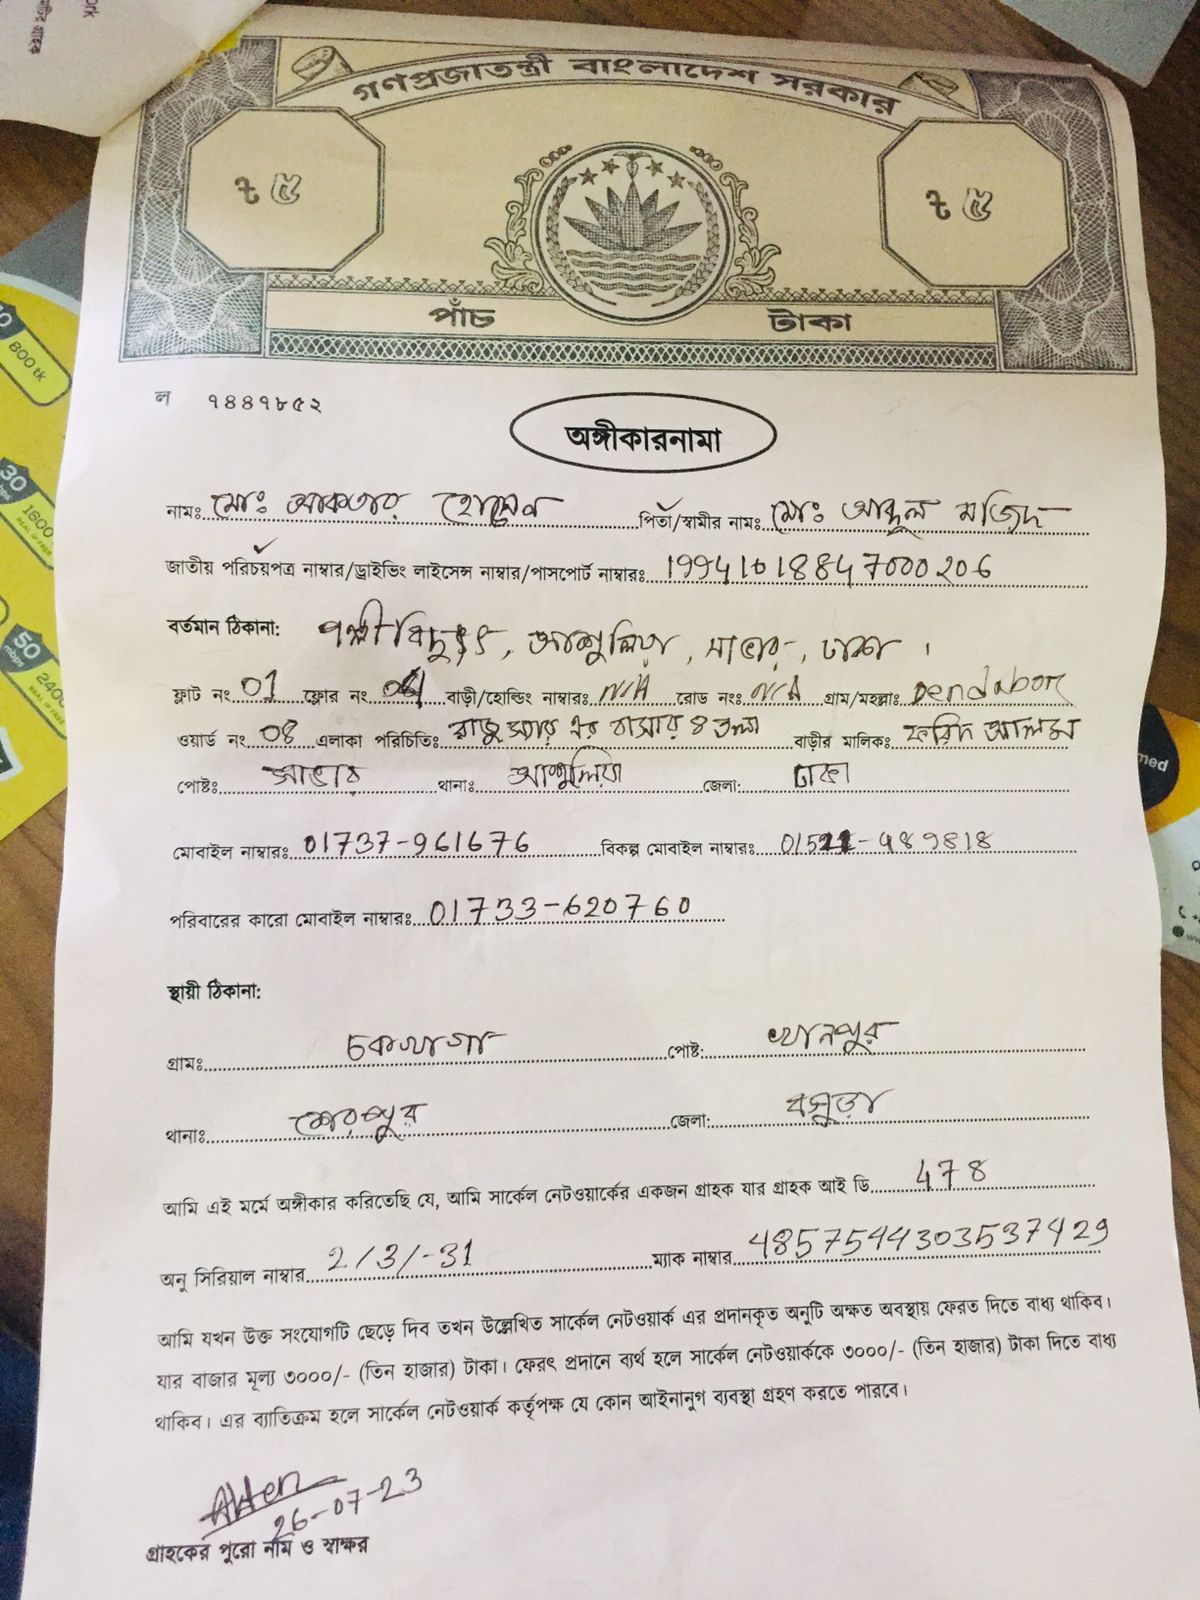 গণপ্রজাতন্ত্রী বাংলাদেশ সরকার
ট ৫ ট ৫
পাঁচ টাকা
ল ৭৪৪৭৮৫২
অঙ্গীকারনামা
নামঃ মোঃ আকতার হোসেন পিতা/স্বামীর নাম: মোঃ আব্দুল মজিদ
জাতীয় পরিচয়পত্র নাম্বার/ড্রাইভিং লাইসেন্স নাম্বার/পাসপোর্ট নাম্বারঃ 19941018847000206
বর্তমান ঠিকানা: পল্লী বিদ্যুৎ, আশুলিয়া, সাভার, ঢাকা।
ফ্লাট নং 01 ফ্লোর নং 04 বাড়ী/হোল্ডিং নাম্বারঃ N/A রোড নংঃ N/A গ্রাম/মহল্লাঃ Dendabor
ওয়ার্ড নং 08 এলাকা পরিচিতি: রাজু স্যার এর বাসার ৪ তলা বাড়ীর মালিক: ফরিদ আলম
পোষ্টঃ সাভার থানাঃ আশুলিয়া জেলা: ঢাকা
মোবাইল নাম্বারঃ 01737-961676 বিকল্প মোবাইল নাম্বারঃ 01521-489818
পরিবারের কারো মোবাইল নাম্বারঃ 01733-620760
স্থায়ী ঠিকানা:
গ্রামঃ চকখাগা পোষ্ট: খানপুর
থানাঃ শেরপুর জেলা: বগুড়া
আমি এই মর্মে অঙ্গীকার করিতেছি যে, আমি সার্কেল নেটওয়ার্কের একজন গ্রাহক যার গ্রাহক আই ডি 478
অনু সিরিয়াল নাম্বার 2/3/-31 ম্যাক নাম্বার 4857544303537429
আমি যখন উক্ত সংযোগটি ছেড়ে দিব তখন উল্লেখিত সার্কেল নেটওয়ার্ক এর প্রদানকৃত অনুটি অক্ষত অবস্থায় ফেরত দিতে বাধ্য থাকিব।
যার বাজার মূল্য ৩০০০/- (তিন হাজার) টাকা। ফেরৎ প্রদানে ব্যর্থ হলে সার্কেল নেটওয়ার্ককে ৩০০০/- (তিন হাজার) টাকা দিতে বাধ্য
থাকিব। এর ব্যাতিক্রম হলে সার্কেল নেটওয়ার্ক কর্তৃপক্ষ যে কোন আইনানুগ ব্যবস্থা গ্রহণ করতে পারবে।
Akter
26-07-23
গ্রাহকের পুরো নাম ও স্বাক্ষর
800 tk
30
1600
50
mbps
2400
med